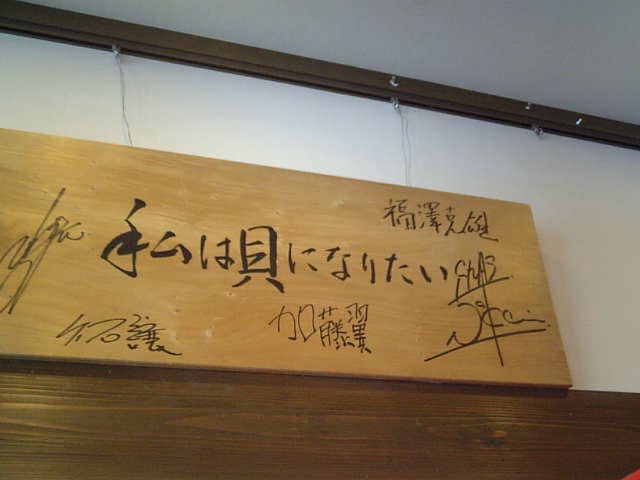 福澤克雄
私は貝になりたい
SMAP
久石譲
加藤翼